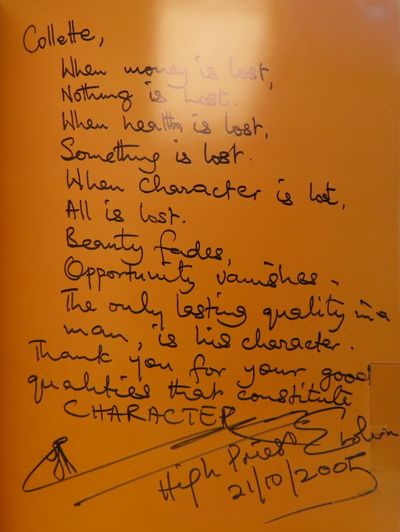 Collette,
When money is lost,
Nothing is Lost.
When health is lost,
Something is lost.
When character is lost,
All is lost.
Beauty fades,
Opportunity vanishes -
The only lasting quality in a
man, is his character.
Thank you for your good
qualities that constitute
CHARACTER
High Priest
21/10/2005